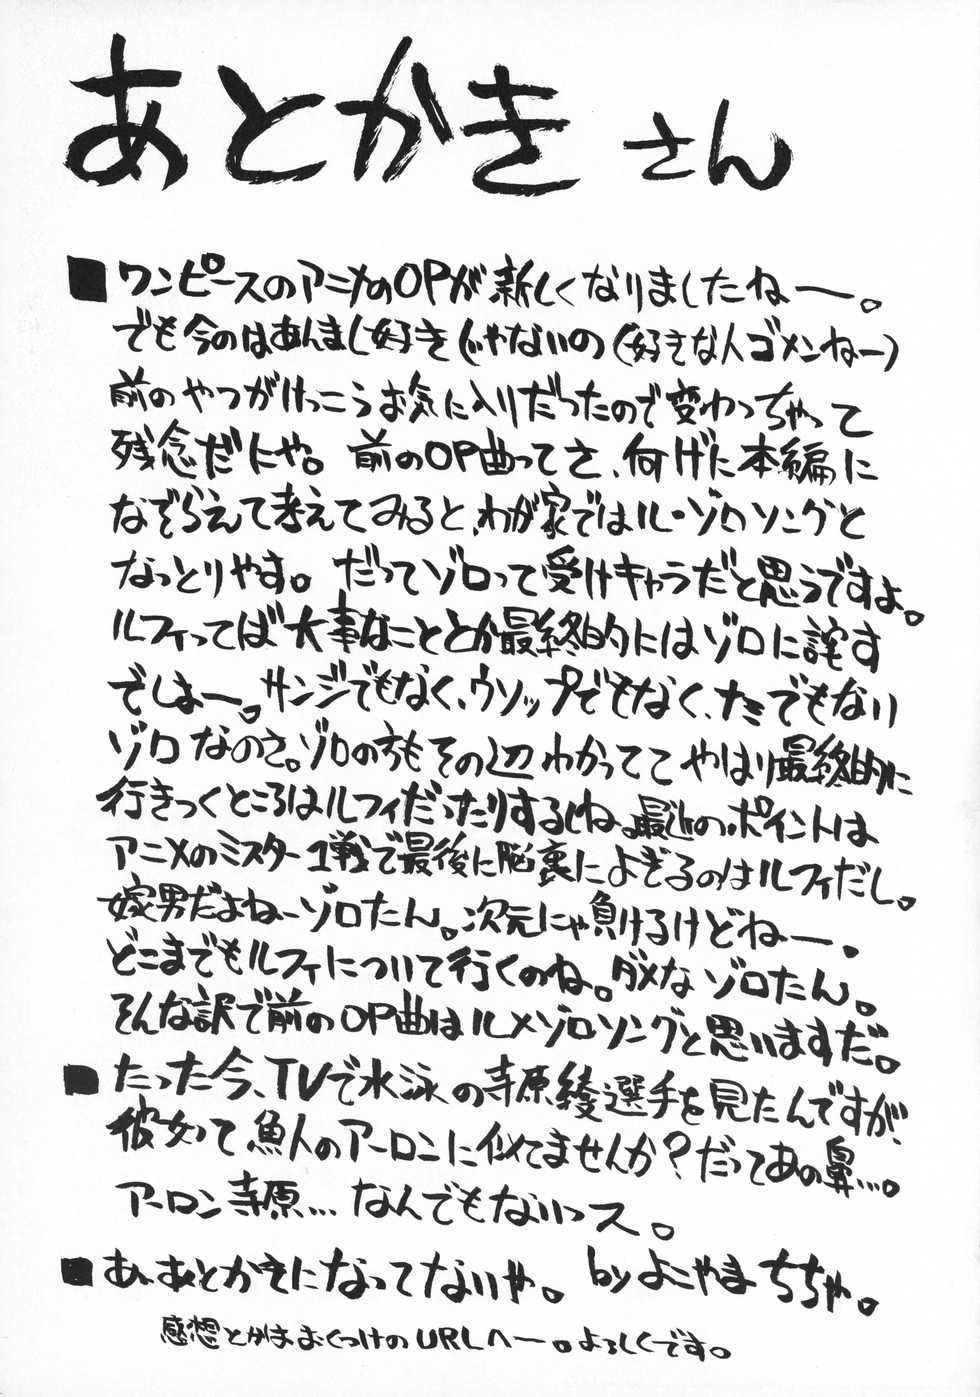 あとかき さん
■ワンピースのアニメのOPが新しくなりましたねー。
でも今のはあんまし好きじゃないの(好きな人ゴメンねー)
前のやつがけっこうお気に入りだったので変わっちゃって
残念だにゃ。前のOP曲ってさ、何げに本編に
なぞらえて考えてみると、わが家ではル・ゾロソングと
なっとりやす。だってゾロって受けキャラだと思うですよ。
ルフィってば大事なこととか最終的にはゾロに詫す
でしょー。サンジでもなく、ウソップでもなく、ナミでもない
ゾロなのさ。ゾロのうちもその辺わかってて やはり最終的に
行きつくところはルフィだったりするしね。最近のポイントは
アニメのミスター1戦で最後に脳裏によぎるのはルフィだし。
嫁男だよねーゾロたん。次元にゃ負けるけどねー。
どこまでもルフィについて行くのね。ダメなゾロたん。
そんな訳で前のOP曲はルメゾロソングと思いますだ。
■たった今、TVで水泳の寺原綾選手を見たんですが、
彼女って魚人のアーロンに似てませんか?だってあの鼻…。
アーロン寺原…なんでもないっス。
■あ、あとかきになってないや。 byよこやまちちゃ。
感想とかはおくつけのURLへー。よろしくです。